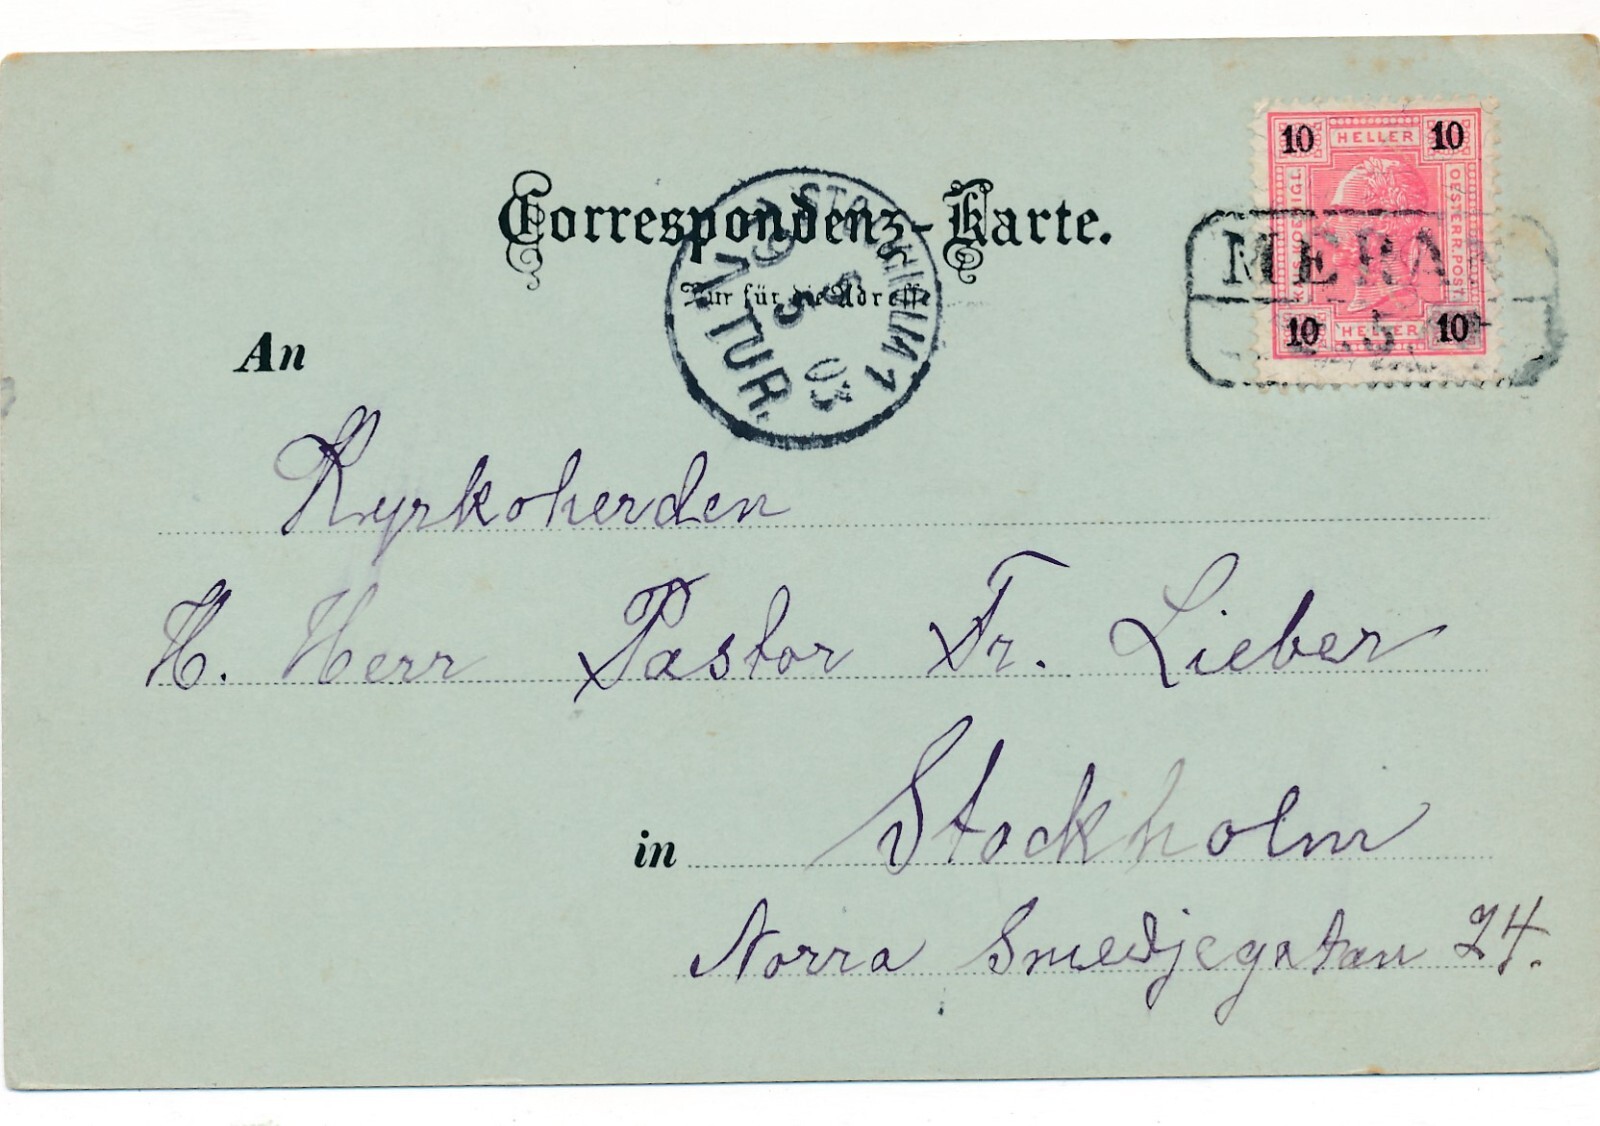 10 HELLER 10
KAIS. KOENIGL. OESTERR. POST
10 HELLER 10
MERAN
5
Correspondenz-Karte.
Nur für die Adresse
STOCKHOLM 1
9 5 03
1 TUR.
An
Kyrkoherden
H. Herr Pastor Fr. Lieber
in Stockholm
Norra Smedjegatan 24.